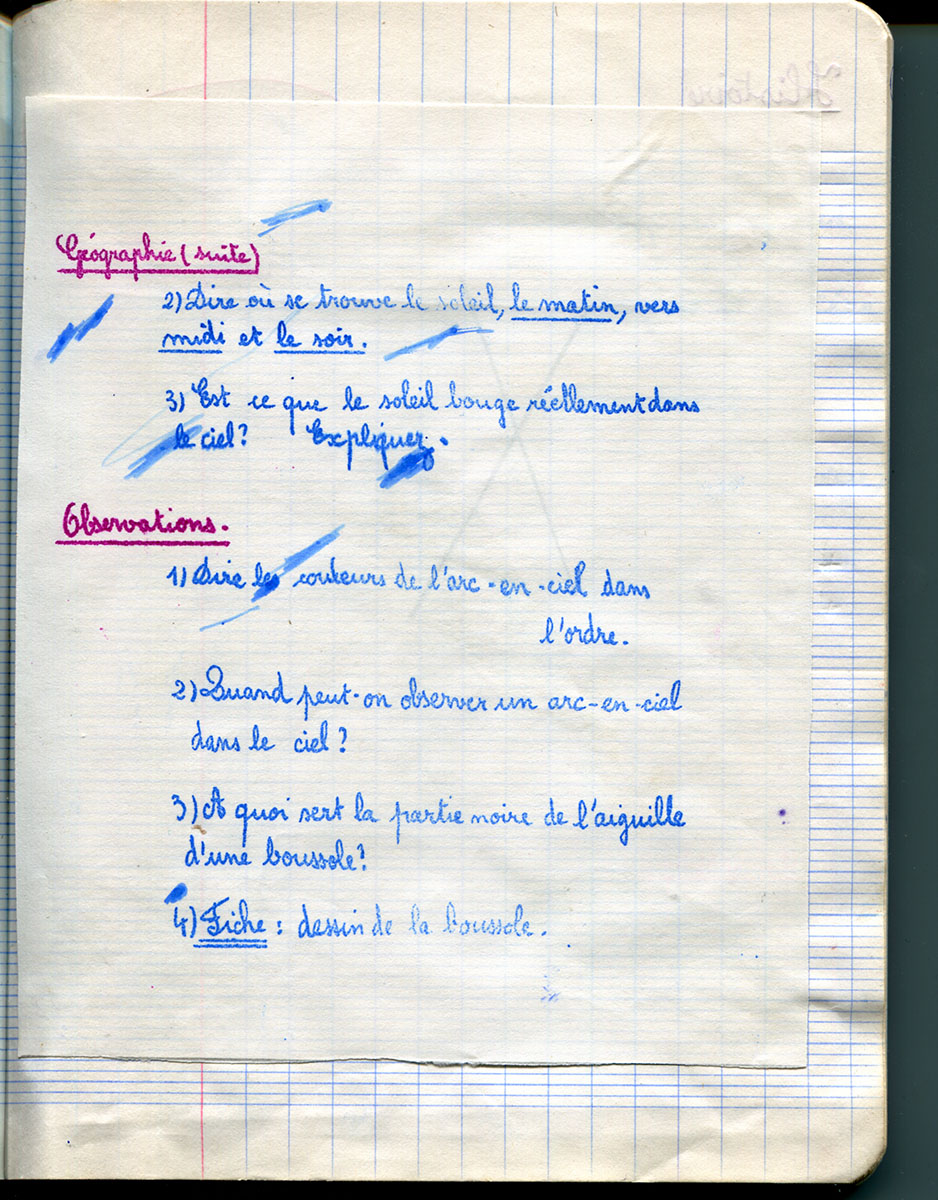 Histoire
Géographie (suite)
2) Dire où se trouve le soleil, le matin, vers
midi et le soir.
3) Est ce que le soleil bouge réellement dans
le ciel? Expliquez.
Observations.
1) Dire les couleurs de l'arc-en-ciel dans
l'ordre.
2) Quand peut-on observer un arc-en-ciel
dans le ciel?
3) A quoi sert la partie noire de l'aiguille
d'une boussole?
4) Fiche : dessin de la boussole.